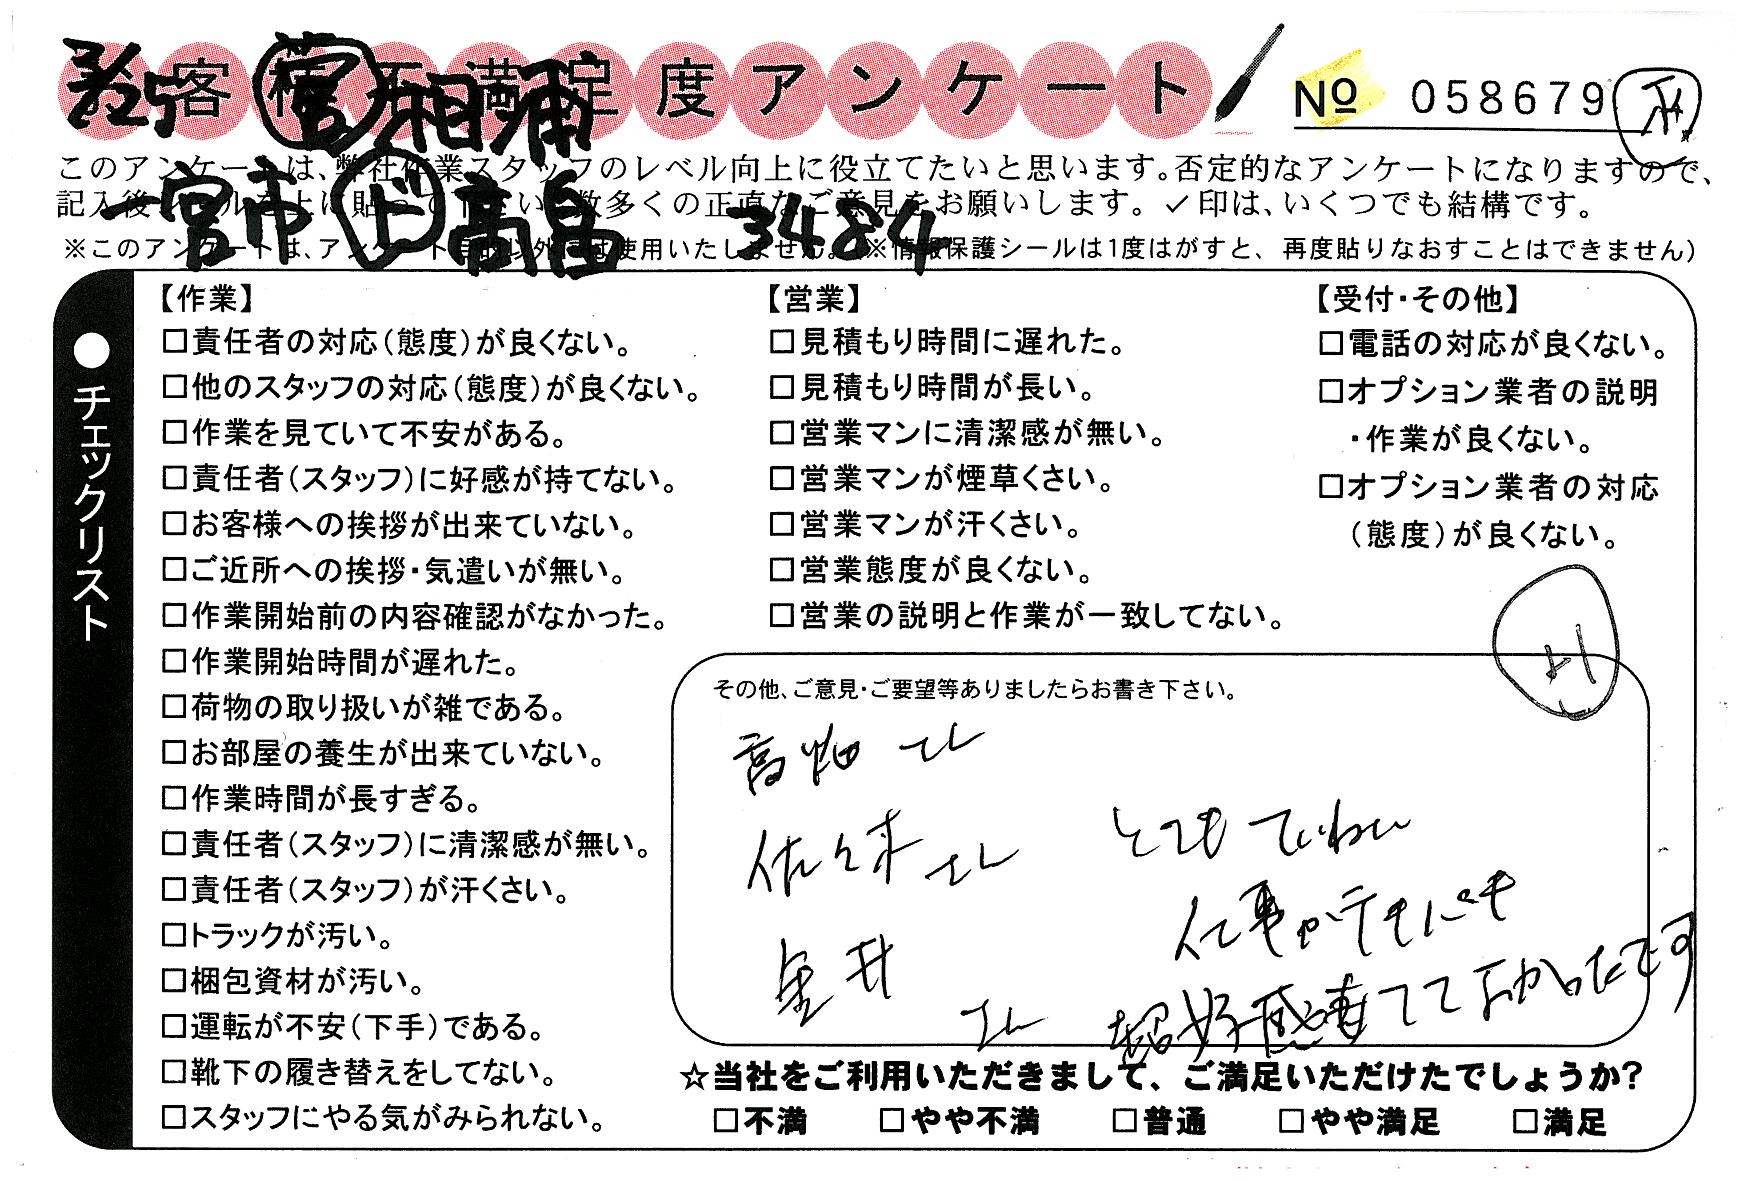 3/25 客様不満足度アンケート № 058679
㊪ 相浦
このアンケートは、弊社作業スタッフのレベル向上に役立てたいと思います。否定的なアンケートになりますので、
記入後シールを上に貼って下さい。数多くの正直なご意見をお願いします。✓印は、いくつでも結構です。
一宮市 ド 高畠 3484
※このアンケートは、アンケート目的以外には使用いたしません。(※情報保護シールは1度はがすと、再度貼りなおすことはできません)
●チェックリスト
【作業】
□責任者の対応(態度)が良くない。
□他のスタッフの対応(態度)が良くない。
□作業を見ていて不安がある。
□責任者(スタッフ)に好感が持てない。
□お客様への挨拶が出来ていない。
□ご近所への挨拶・気遣いが無い。
□作業開始前の内容確認がなかった。
□作業開始時間が遅れた。
□荷物の取り扱いが雑である。
□お部屋の養生が出来ていない。
□作業時間が長すぎる。
□責任者(スタッフ)に清潔感が無い。
□責任者(スタッフ)が汗くさい。
□トラックが汚い。
□梱包資材が汚い。
□運転が不安(下手)である。
□靴下の履き替えをしてない。
□スタッフにやる気がみられない。
【営業】
□見積もり時間に遅れた。
□見積もり時間が長い。
□営業マンに清潔感が無い。
□営業マンが煙草くさい。
□営業マンが汗くさい。
□営業態度が良くない。
□営業の説明と作業が一致してない。
【受付・その他】
□電話の対応が良くない。
□オプション業者の説明
・作業が良くない。
□オプション業者の対応
(態度)が良くない。
その他、ご意見・ご要望等ありましたらお書き下さい。
高畑 さん
佐々木 さん
金井 さん
とても ていねい
仕事がテキパキ
超好感持てて よかったです
☆当社をご利用いただきまして、ご満足いただけたでしょうか?
□不満 □やや不満 □普通 □やや満足 □満足